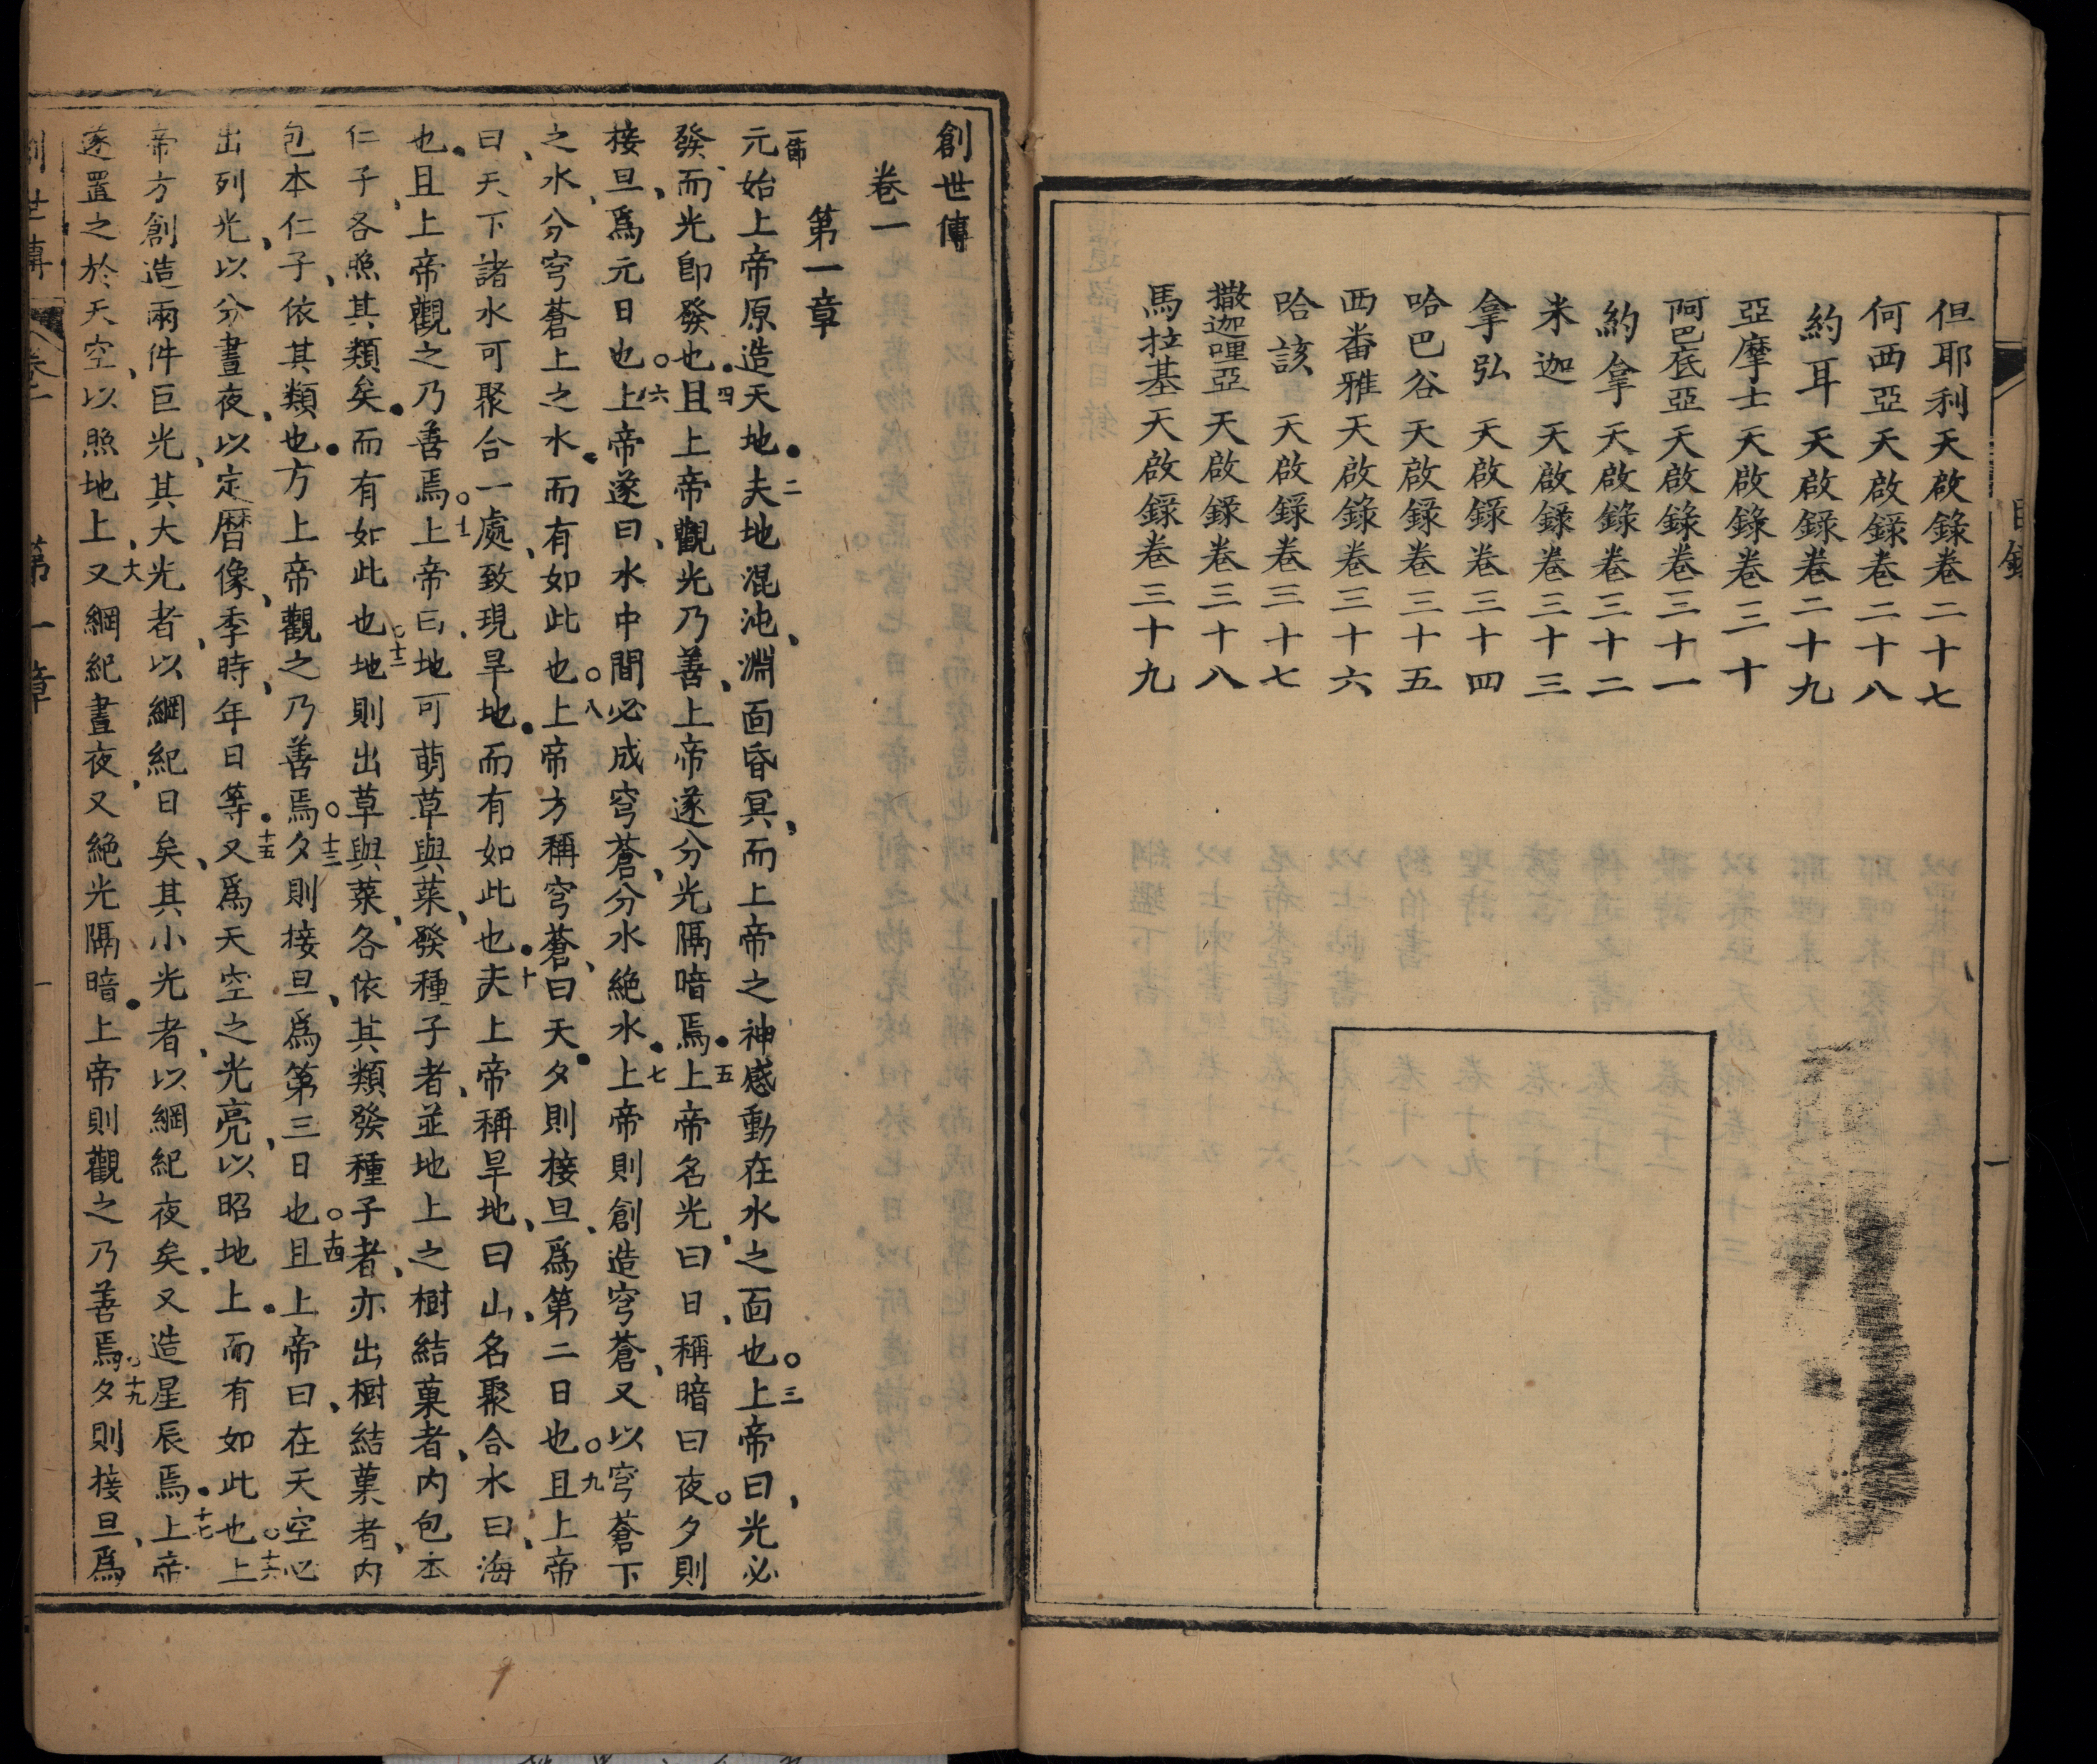 目錄
一
但耶利天啟錄卷二十七
何西亞天啟錄卷二十八
約耳天啟錄卷二十九
亞摩士天啟錄卷三十
阿巴底亞天啟錄卷三十一
約拿天啟錄卷三十二
米迦天啟錄卷三十三
拿弘天啟錄卷三十四
哈巴谷天啟錄卷三十五
西番雅天啟錄卷三十六
哈該天啟錄卷三十七
撒迦哩亞天啟錄卷三十八
馬拉基天啟錄卷三十九
創世傳
卷一
第一章
一節元始上帝原造天地●二夫地混沌、淵面昏冥、而上帝之神感動在水之面也○三上帝曰、光必
發、而光卽發也●四且上帝觀光乃善、上帝遂分光隔暗焉●五上帝名光曰日、稱暗曰夜○夕則
接旦、爲元日也○六上帝遂曰、水中間必成穹蒼、分水絶水●七上帝則創造穹蒼、又以穹蒼下
之水、分穹蒼上之水●而有如此也○八上帝方稱穹蒼、曰天●夕則接旦、爲第二日也○九且上帝
曰、天下諸水可聚合一處、致現旱地●而有如此也●十夫上帝稱旱地、曰山、名聚合水曰、海
也●且上帝觀之乃善焉○十一上帝曰、地可萌草與菜、發種子者、並地上之樹結菓者、內包本
仁子、各照其類矣●而有如此也○十二地則出草與菜、各依其類發種子者、亦出樹結菓者、內
包本仁子、依其類也●方上帝觀之乃善焉○十三夕則接旦、爲第三日也○十四且上帝曰、在天空必
出列光、以分晝夜、以定曆像、季時、年日等●十五又爲天空之光亮、以昭地上●而有如此也○十六上
帝方創造兩件巨光、其大光者、以綱紀日矣、其小光者、以綱紀夜矣、又造星辰焉●十七上帝
遂置之於天空、以照地上、十八又綱紀晝夜、又絶光隔暗●上帝則觀之乃善焉○十九夕則接旦、爲
創世傳
卷一
第一章
一